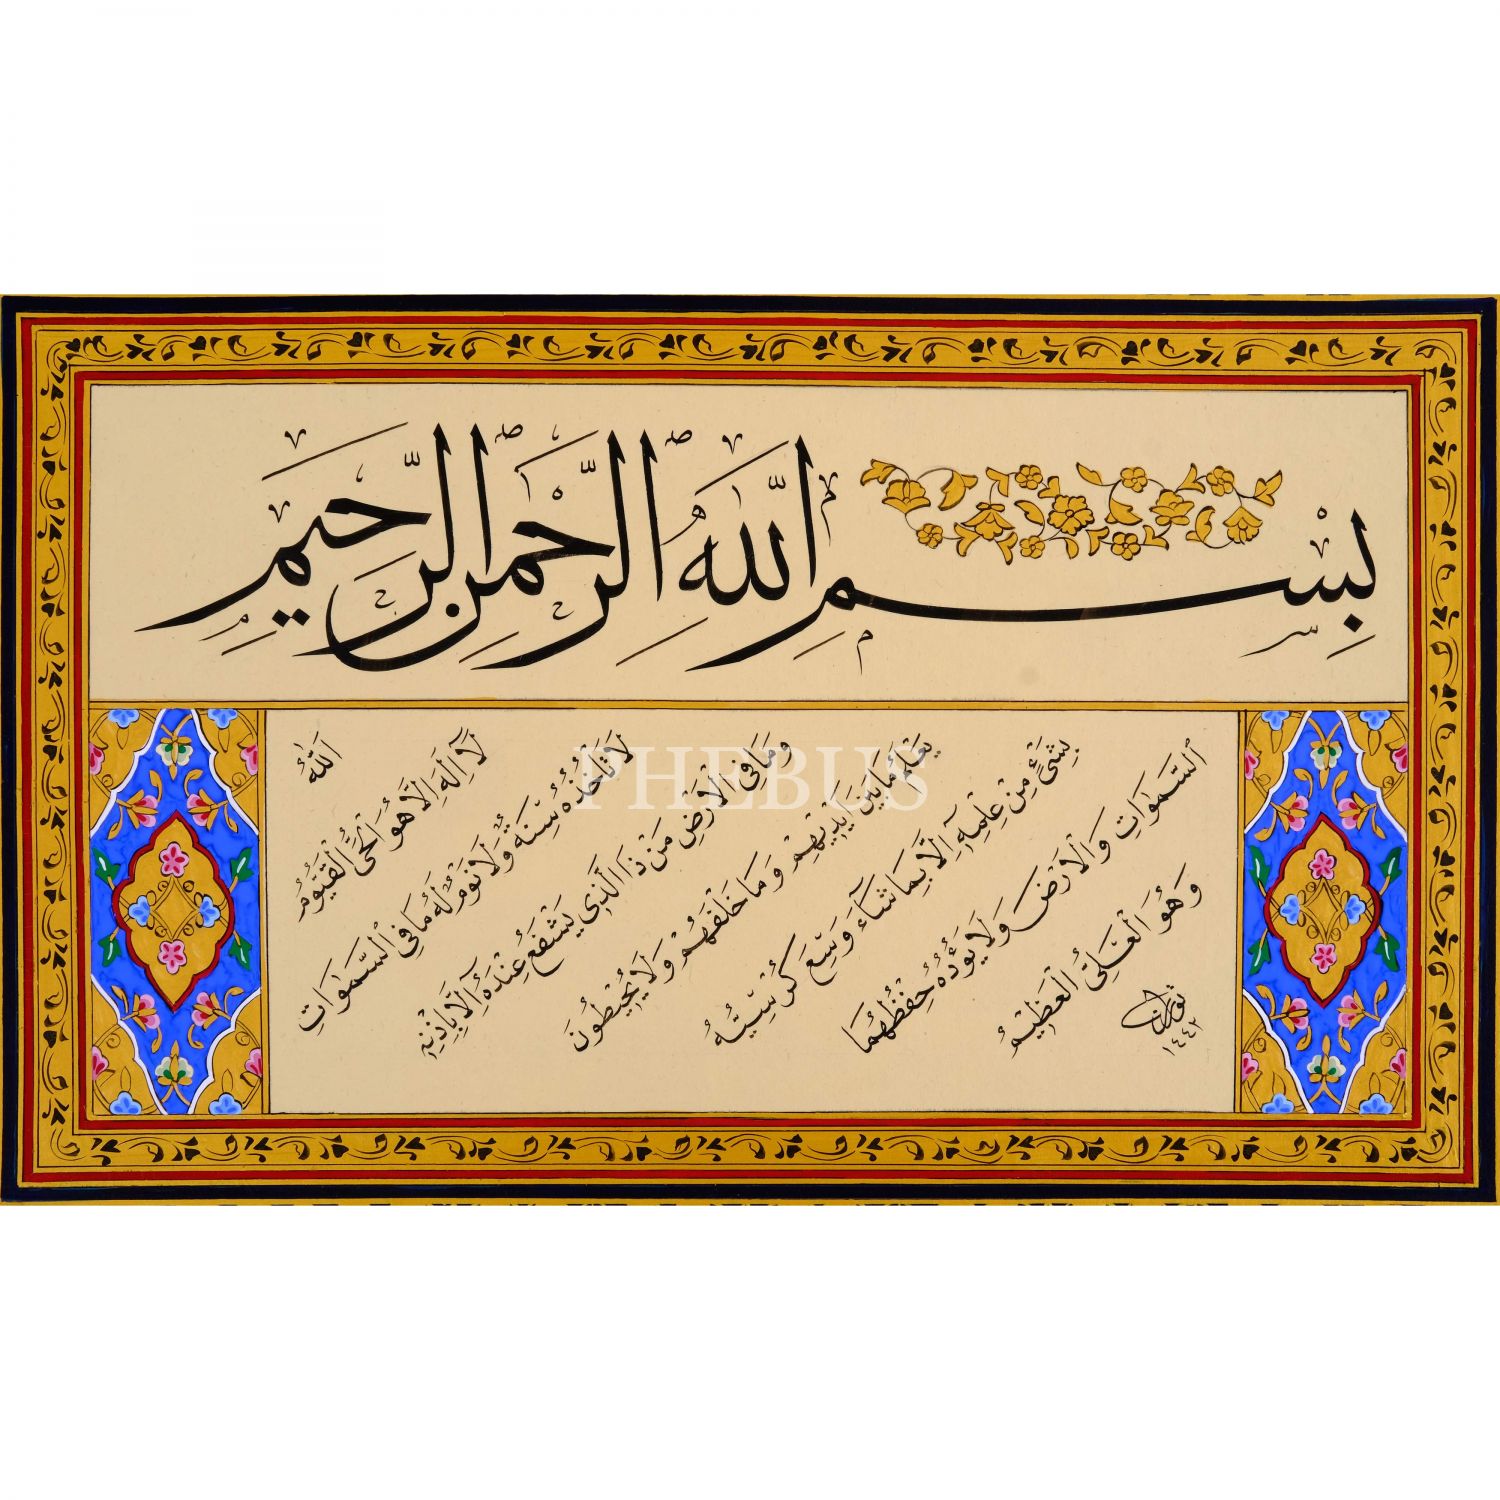 بِسْمِ اللّٰهِ الرَّحْمٰنِ الرَّحِيمِ
اَللّٰهُ
لَآ اِلٰهَ اِلَّا هُوَ اَلْحَيُّ الْقَيُّومُ
لَا تَأْخُذُهُ سِنَةٌ وَلَا نَوْمٌ لَهُ مَا فِي السَّمٰوَاتِ
وَمَا فِي الْاَرْضِ مَنْ ذَا الَّذِي يَشْفَعُ عِنْدَهُ اِلَّا بِاِذْنِهِ
يَعْلَمُ مَا بَيْنَ اَيْدِيهِمْ وَمَا خَلْفَهُمْ وَلَا يُحِيطُونَ
بِشَيْءٍ مِنْ عِلْمِهِ اِلَّا بِمَا شَآءَ وَسِعَ كُرْسِيُّهُ
السَّمٰوَاتِ وَالْاَرْضَ وَلَا يَؤُدُهُ حِفْظُهُمَا
وَهُوَ الْعَلِيُّ الْعَظِيمُ
١٤٤٢
PHEBUS